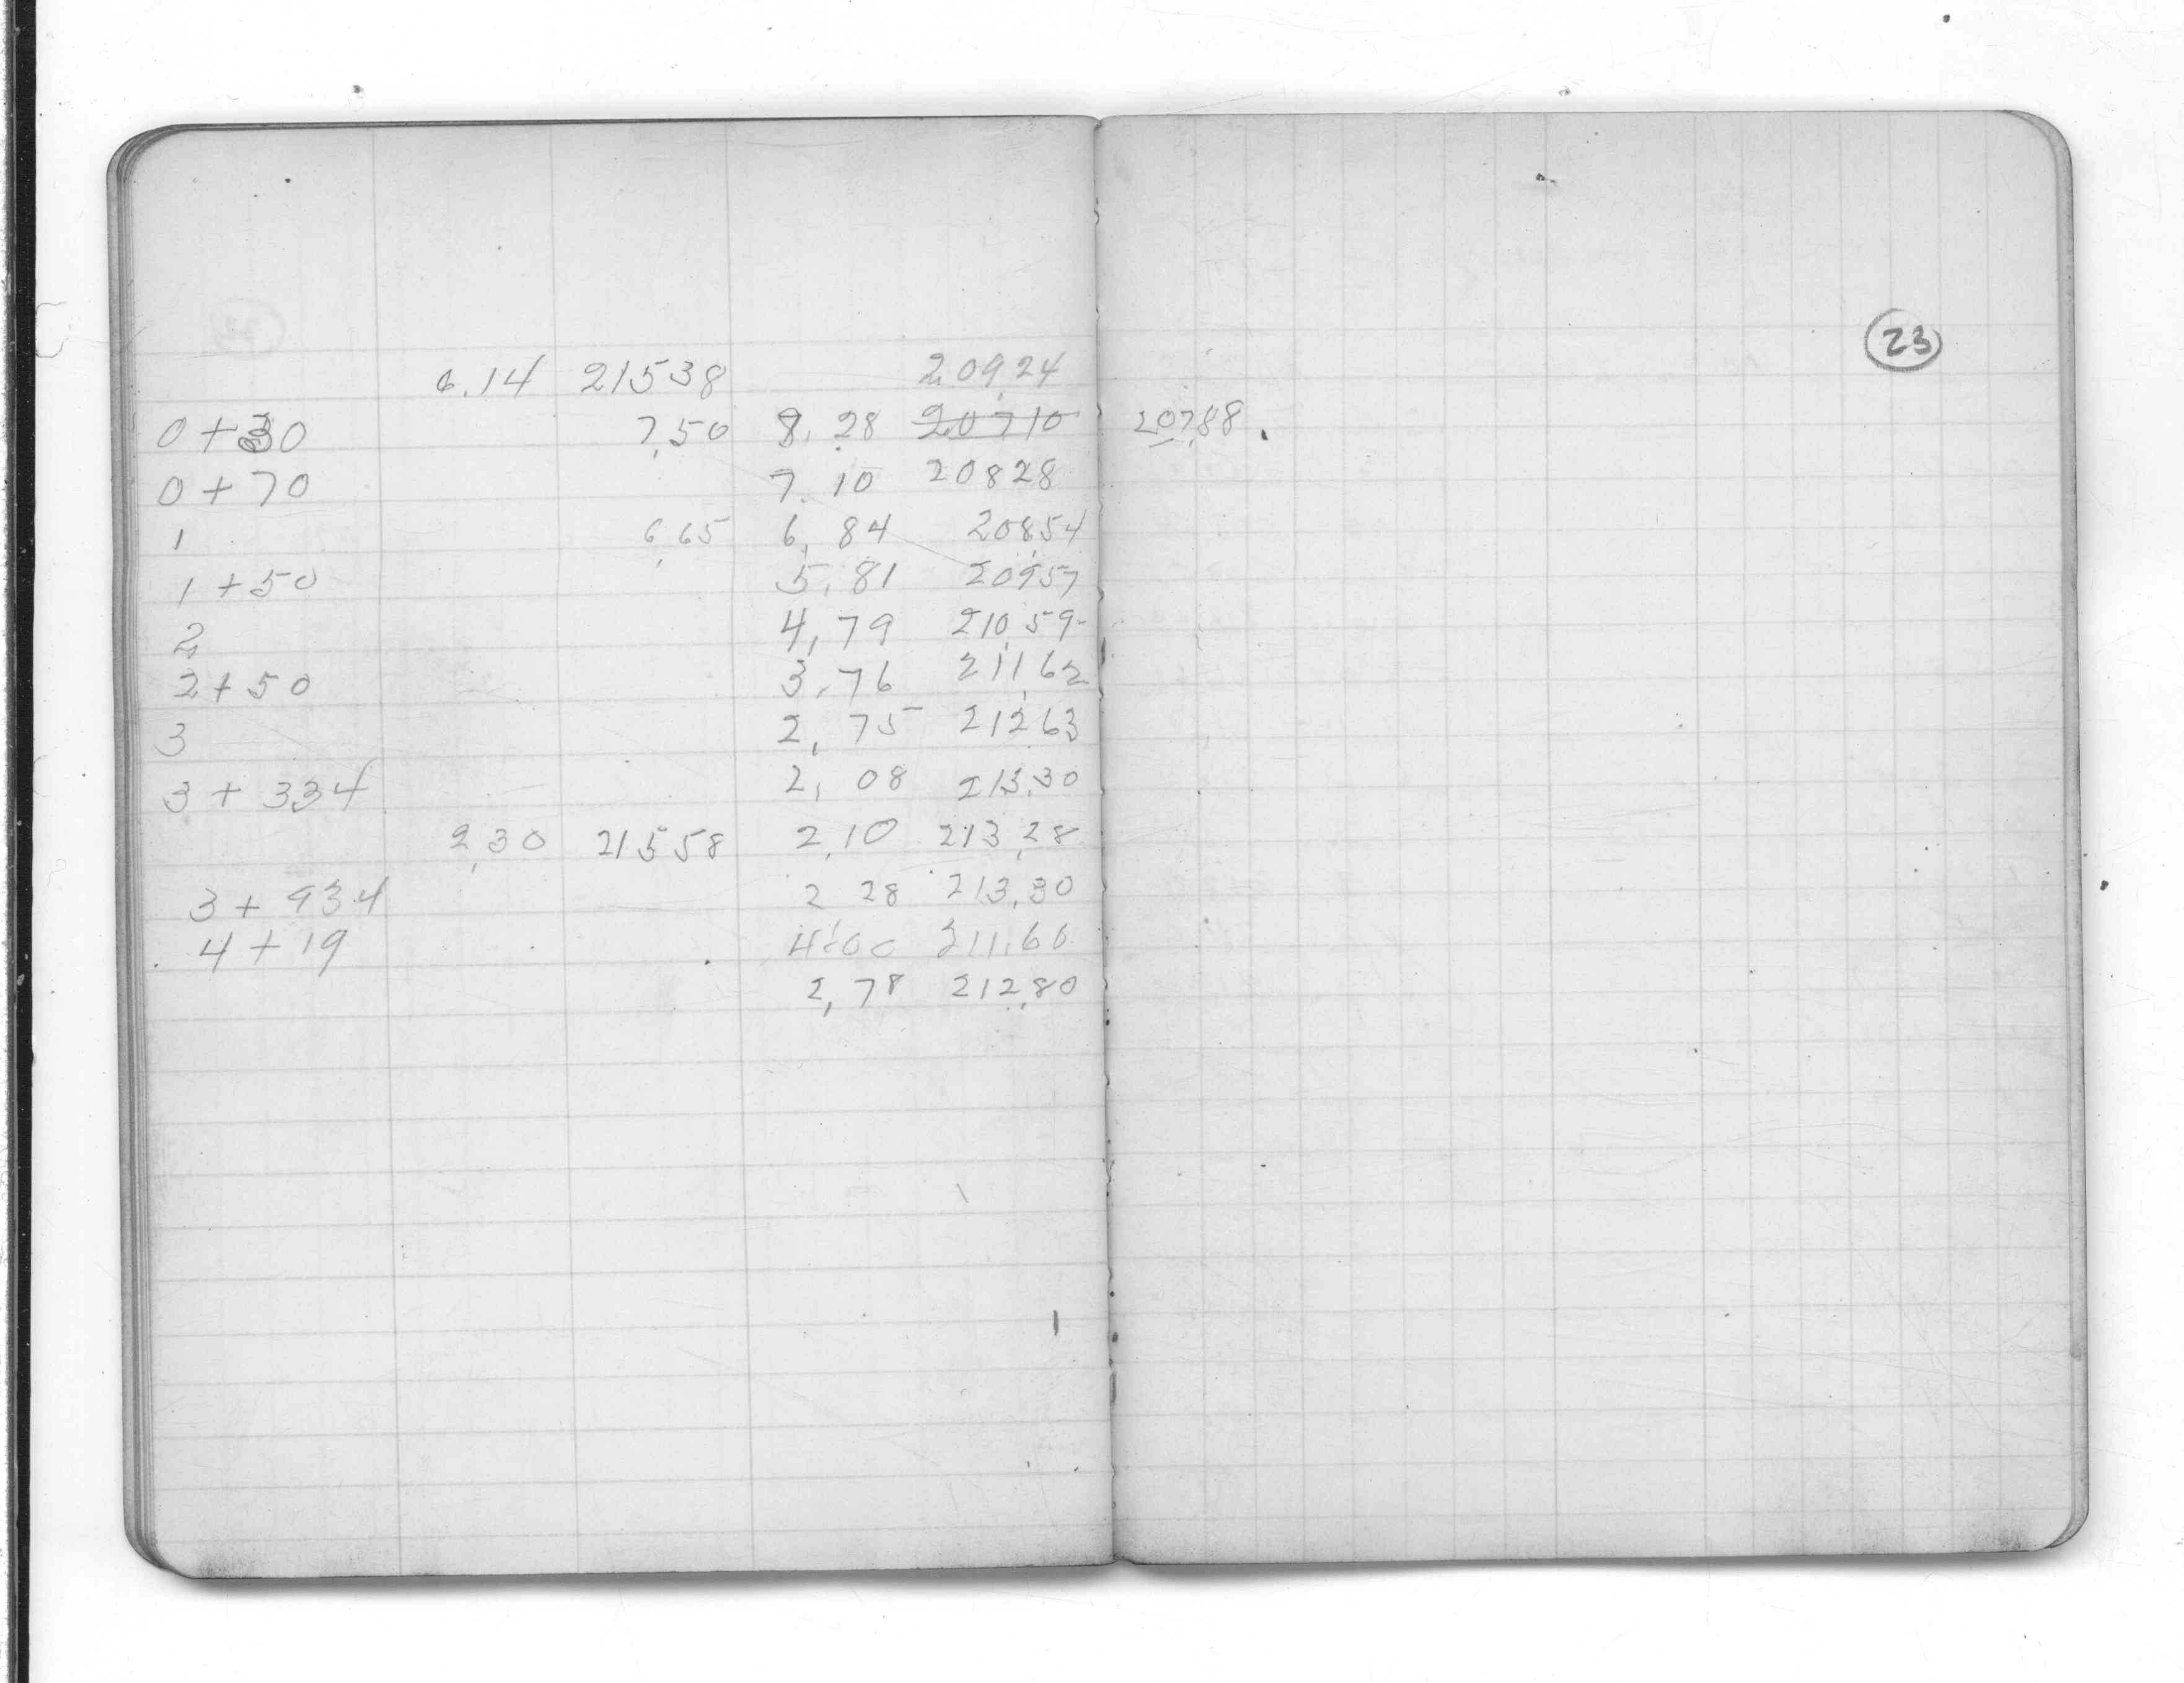 23
6.14 21538 209,24
0+30 7,50 8,28 20710 207,88.
0+70 7.10 20828
1 6,65 6,84 208,54
1+50 5,81 20957
2 4,79 210,59-
2+50 3,76 211,62
3 2,75 21263
3+334 2,08 213,30
2,30 21558 2,10 213,28
3+934 2 28 213,30
4+19 4.00 211.60
2,78 212,80